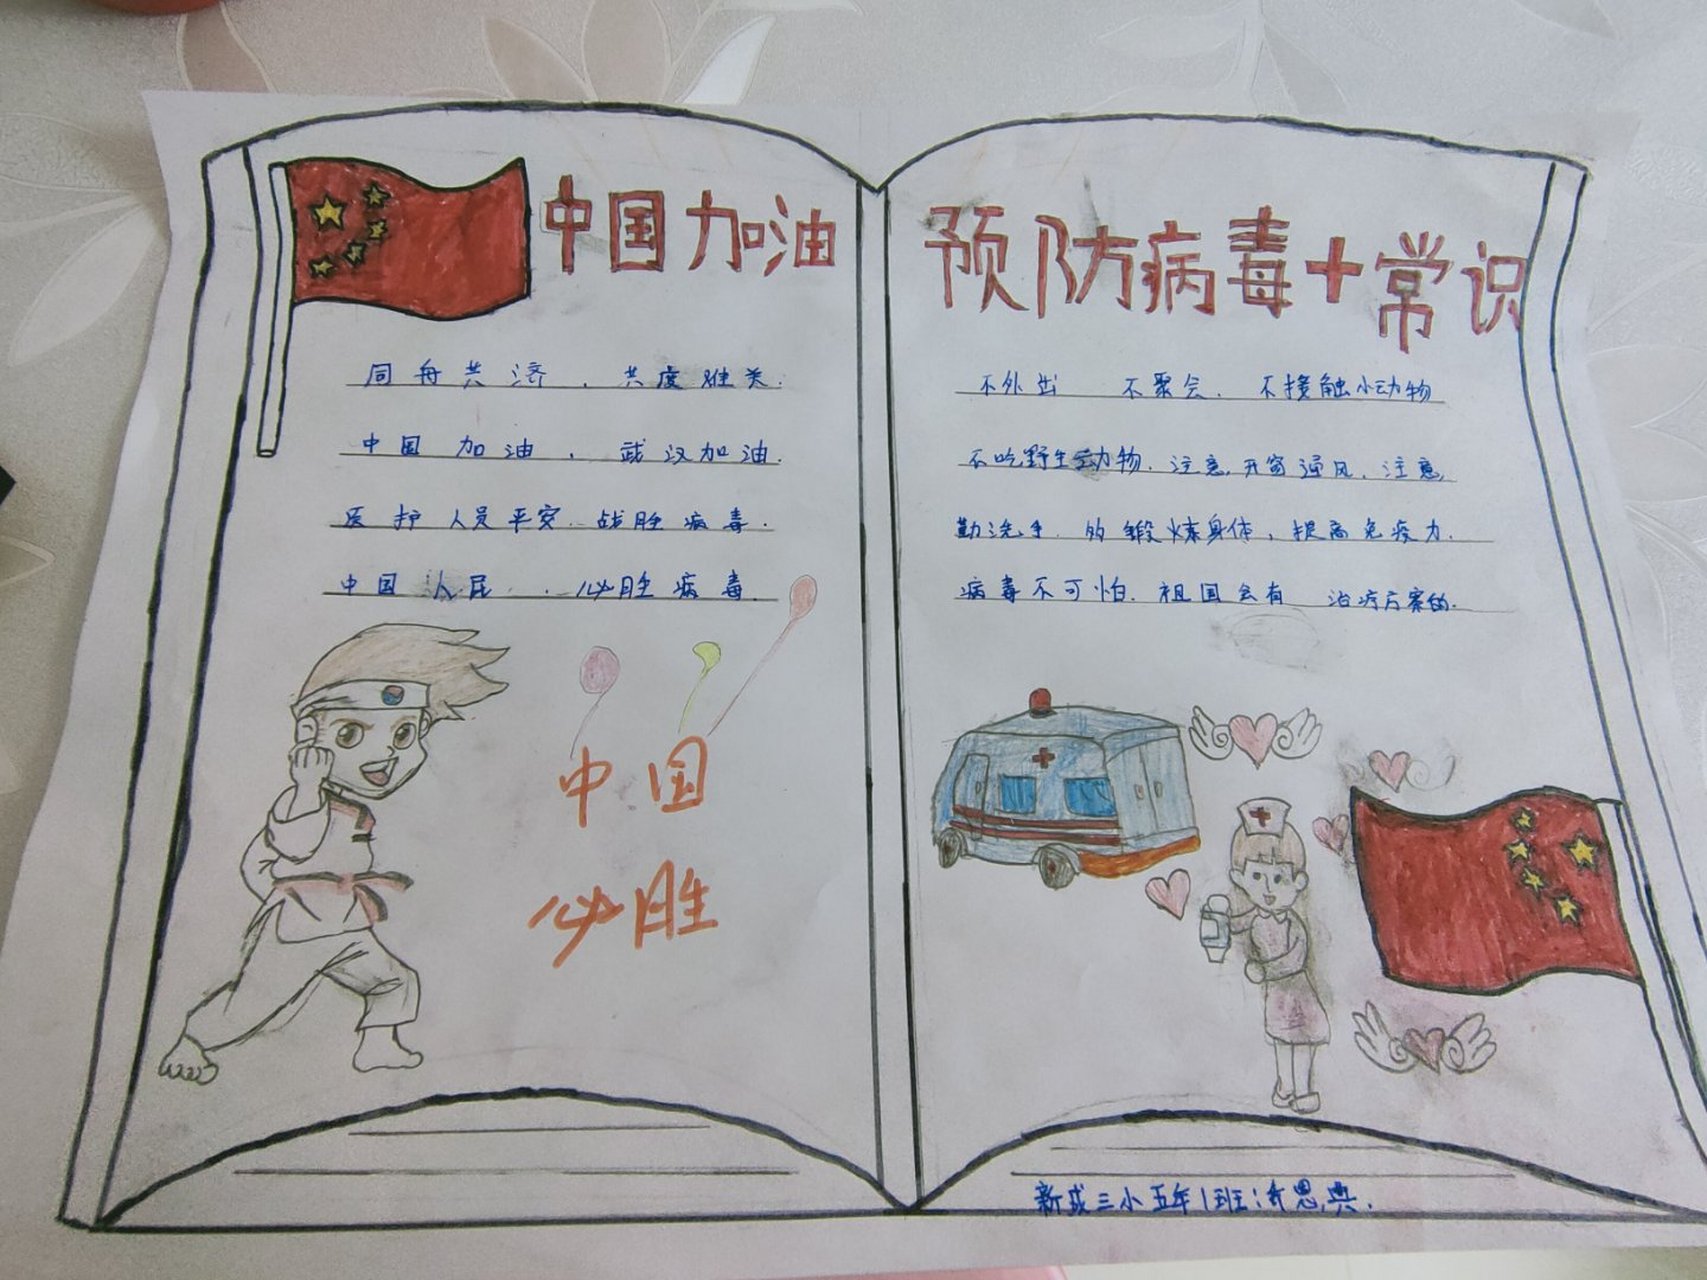 中国加油
同舟共济，共度难关.
中国加油，武汉加油.
医护人员平安 战胜病毒.
中国人民，必胜病毒.
中国
必胜
预防病毒+常识
不外出 不聚会. 不接触小动物
不吃野生动物. 注意开窗通风. 注意
勤洗手. 锻炼身体，提高免疫力.
病毒不可怕. 祖国会有 治疗方案的.
三小五年1班: 思典.